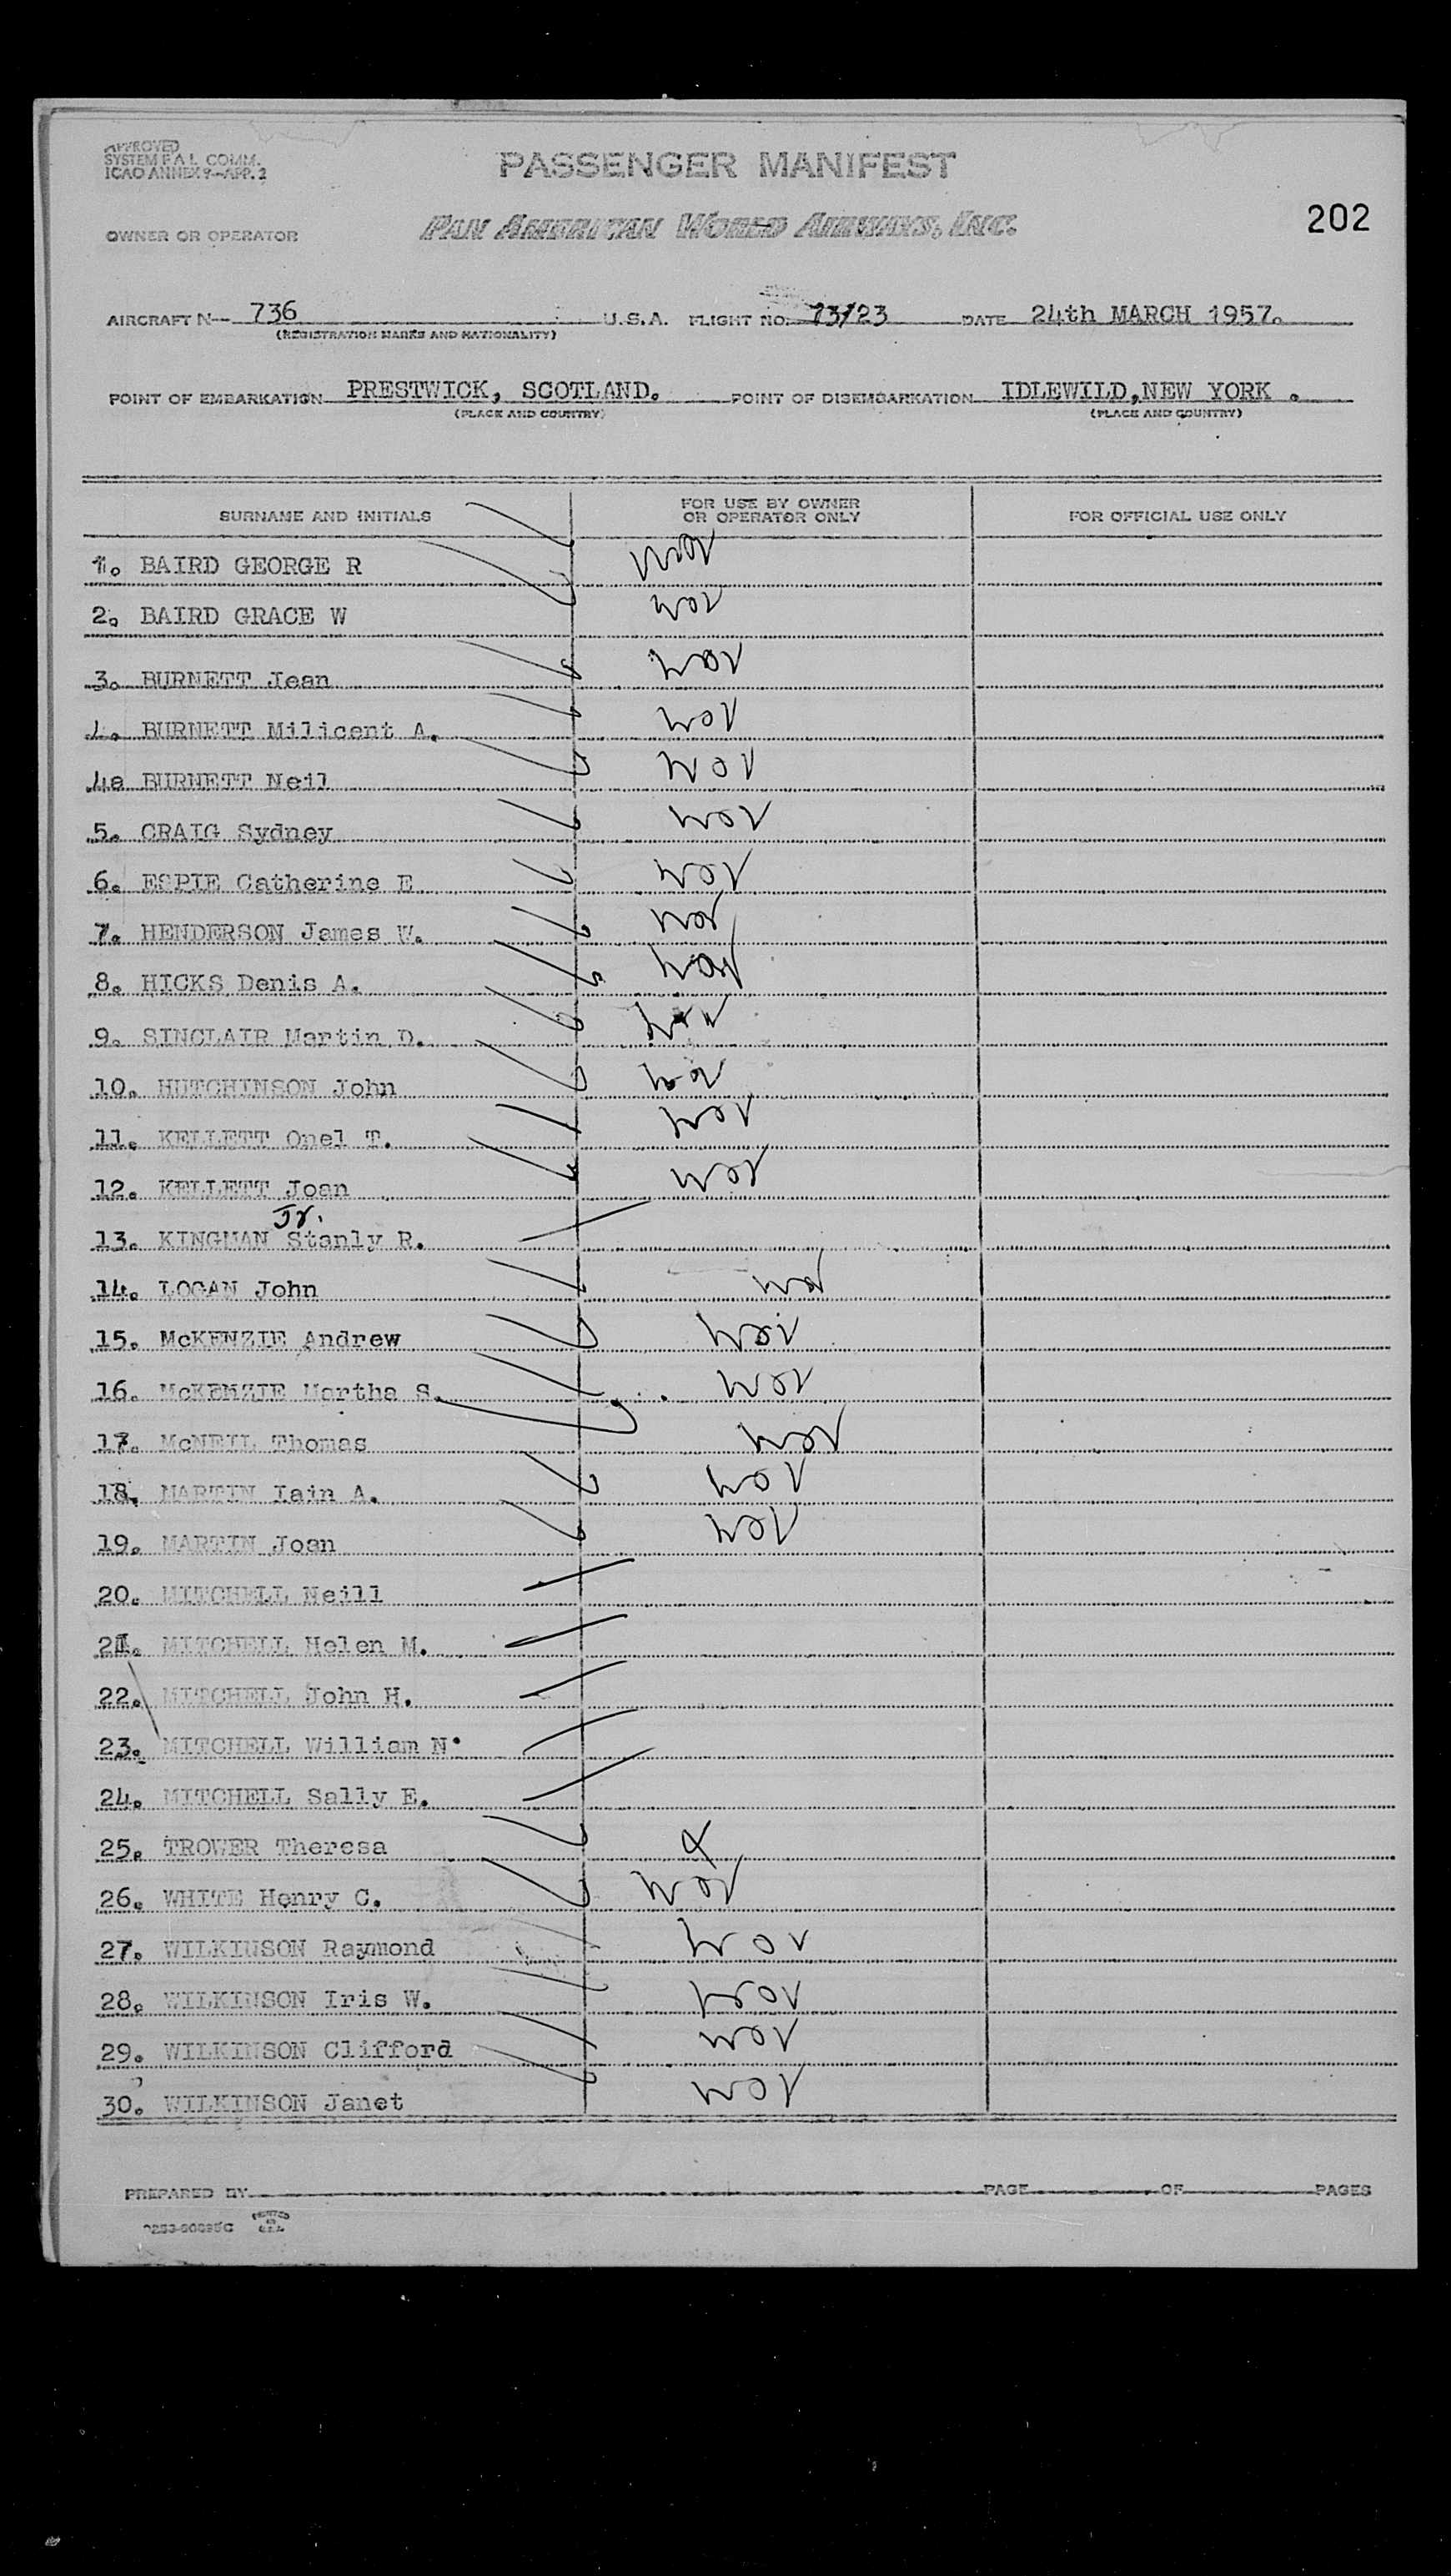 APPROVED
SYSTEM P A L COMM.
ICAO ANNEX 9-APP. 2
PASSENGER MANIFEST
OWNER OR OPERATOR
PAN AMERICAN WORLD AIRWAYS, INC.
202
AIRCRAFT N- 736 U.S.A. FLIGHT NO. 73/23 DATE 24th MARCH 1957.
(REGISTRATION MARKS AND NATIONALITY)
POINT OF EMBARKATION PRESTWICK, SCOTLAND. POINT OF DISEMBARKATION IDLEWILD,NEW YORK .
(PLACE AND COUNTRY) (PLACE AND COUNTRY)
SURNAME AND INITIALS
FOR USE BY OWNER
OR OPERATOR ONLY
FOR OFFICIAL USE ONLY
1. BAIRD GEORGE R
2. BAIRD GRACE W
3. BURNETT Jean
4. BURNETT Milicent A.
4a BURNETT Neil
5. CRAIG Sydney
6. ESPIE Catherine E
7. HENDERSON James W.
8. HICKS Denis A.
9. SINCLAIR Martin D.
10. HUTCHINSON John
11. KELLETT Onel T.
12. KELLETT Joan
Jr.
13. KINGMAN Stanly R.
14. LOGAN John
15. McKENZIE Andrew
16. McKENZIE Martha S.
17. McNEIL Thomas
18. MARTIN Iain A.
19. MARTIN Joan
20. MITCHELL Neill
21. MITCHELL Helen M.
22. MITCHELL John H.
23. MITCHELL William N.
24. MITCHELL Sally E.
25. TROWER Theresa
26. WHITE Henry C.
27. WILKINSON Raymond
28. WILKINSON Iris W.
29. WILKINSON Clifford
30. WILKINSON Janet
PREPARED BY PAGE OF PAGES
PRINTED
IN
U.S.A.